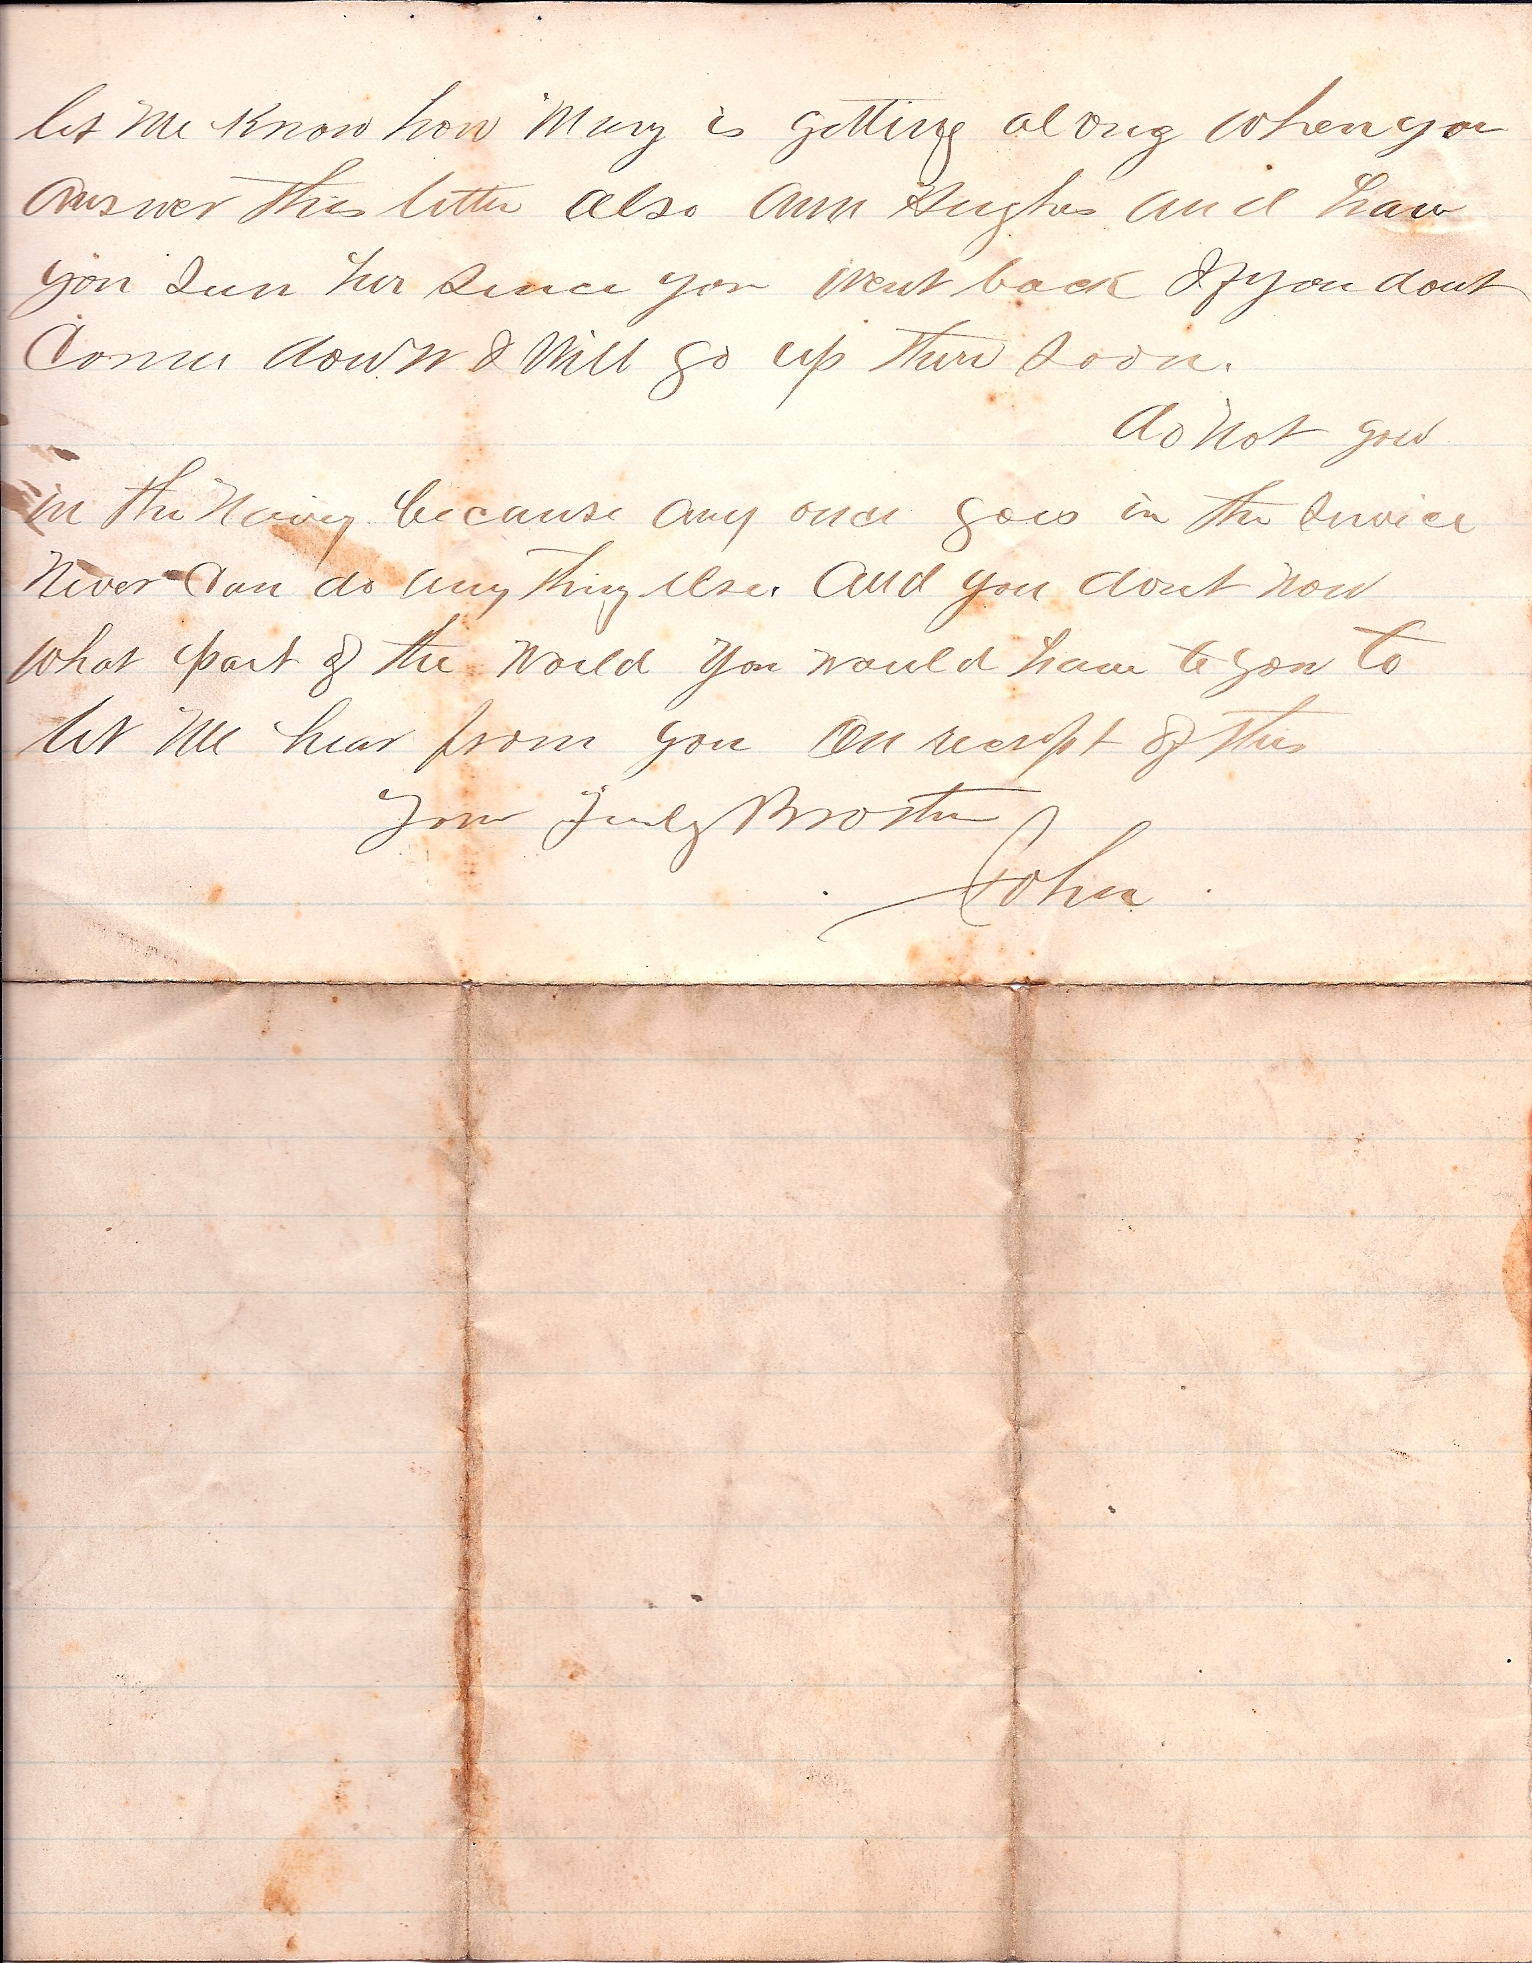 let me Know how Mary is getting along when you
answer this letter also Ann Hughes and have
you seen her since you went back If you dont
Come down I Will go up there soon.
do not gow
in the Navy because any one goes in the service
Never Can do any thing else. And you dont now
what part of the World you would have to gow to
let Me hear from you On receipt of this
Your Truly Brother
John